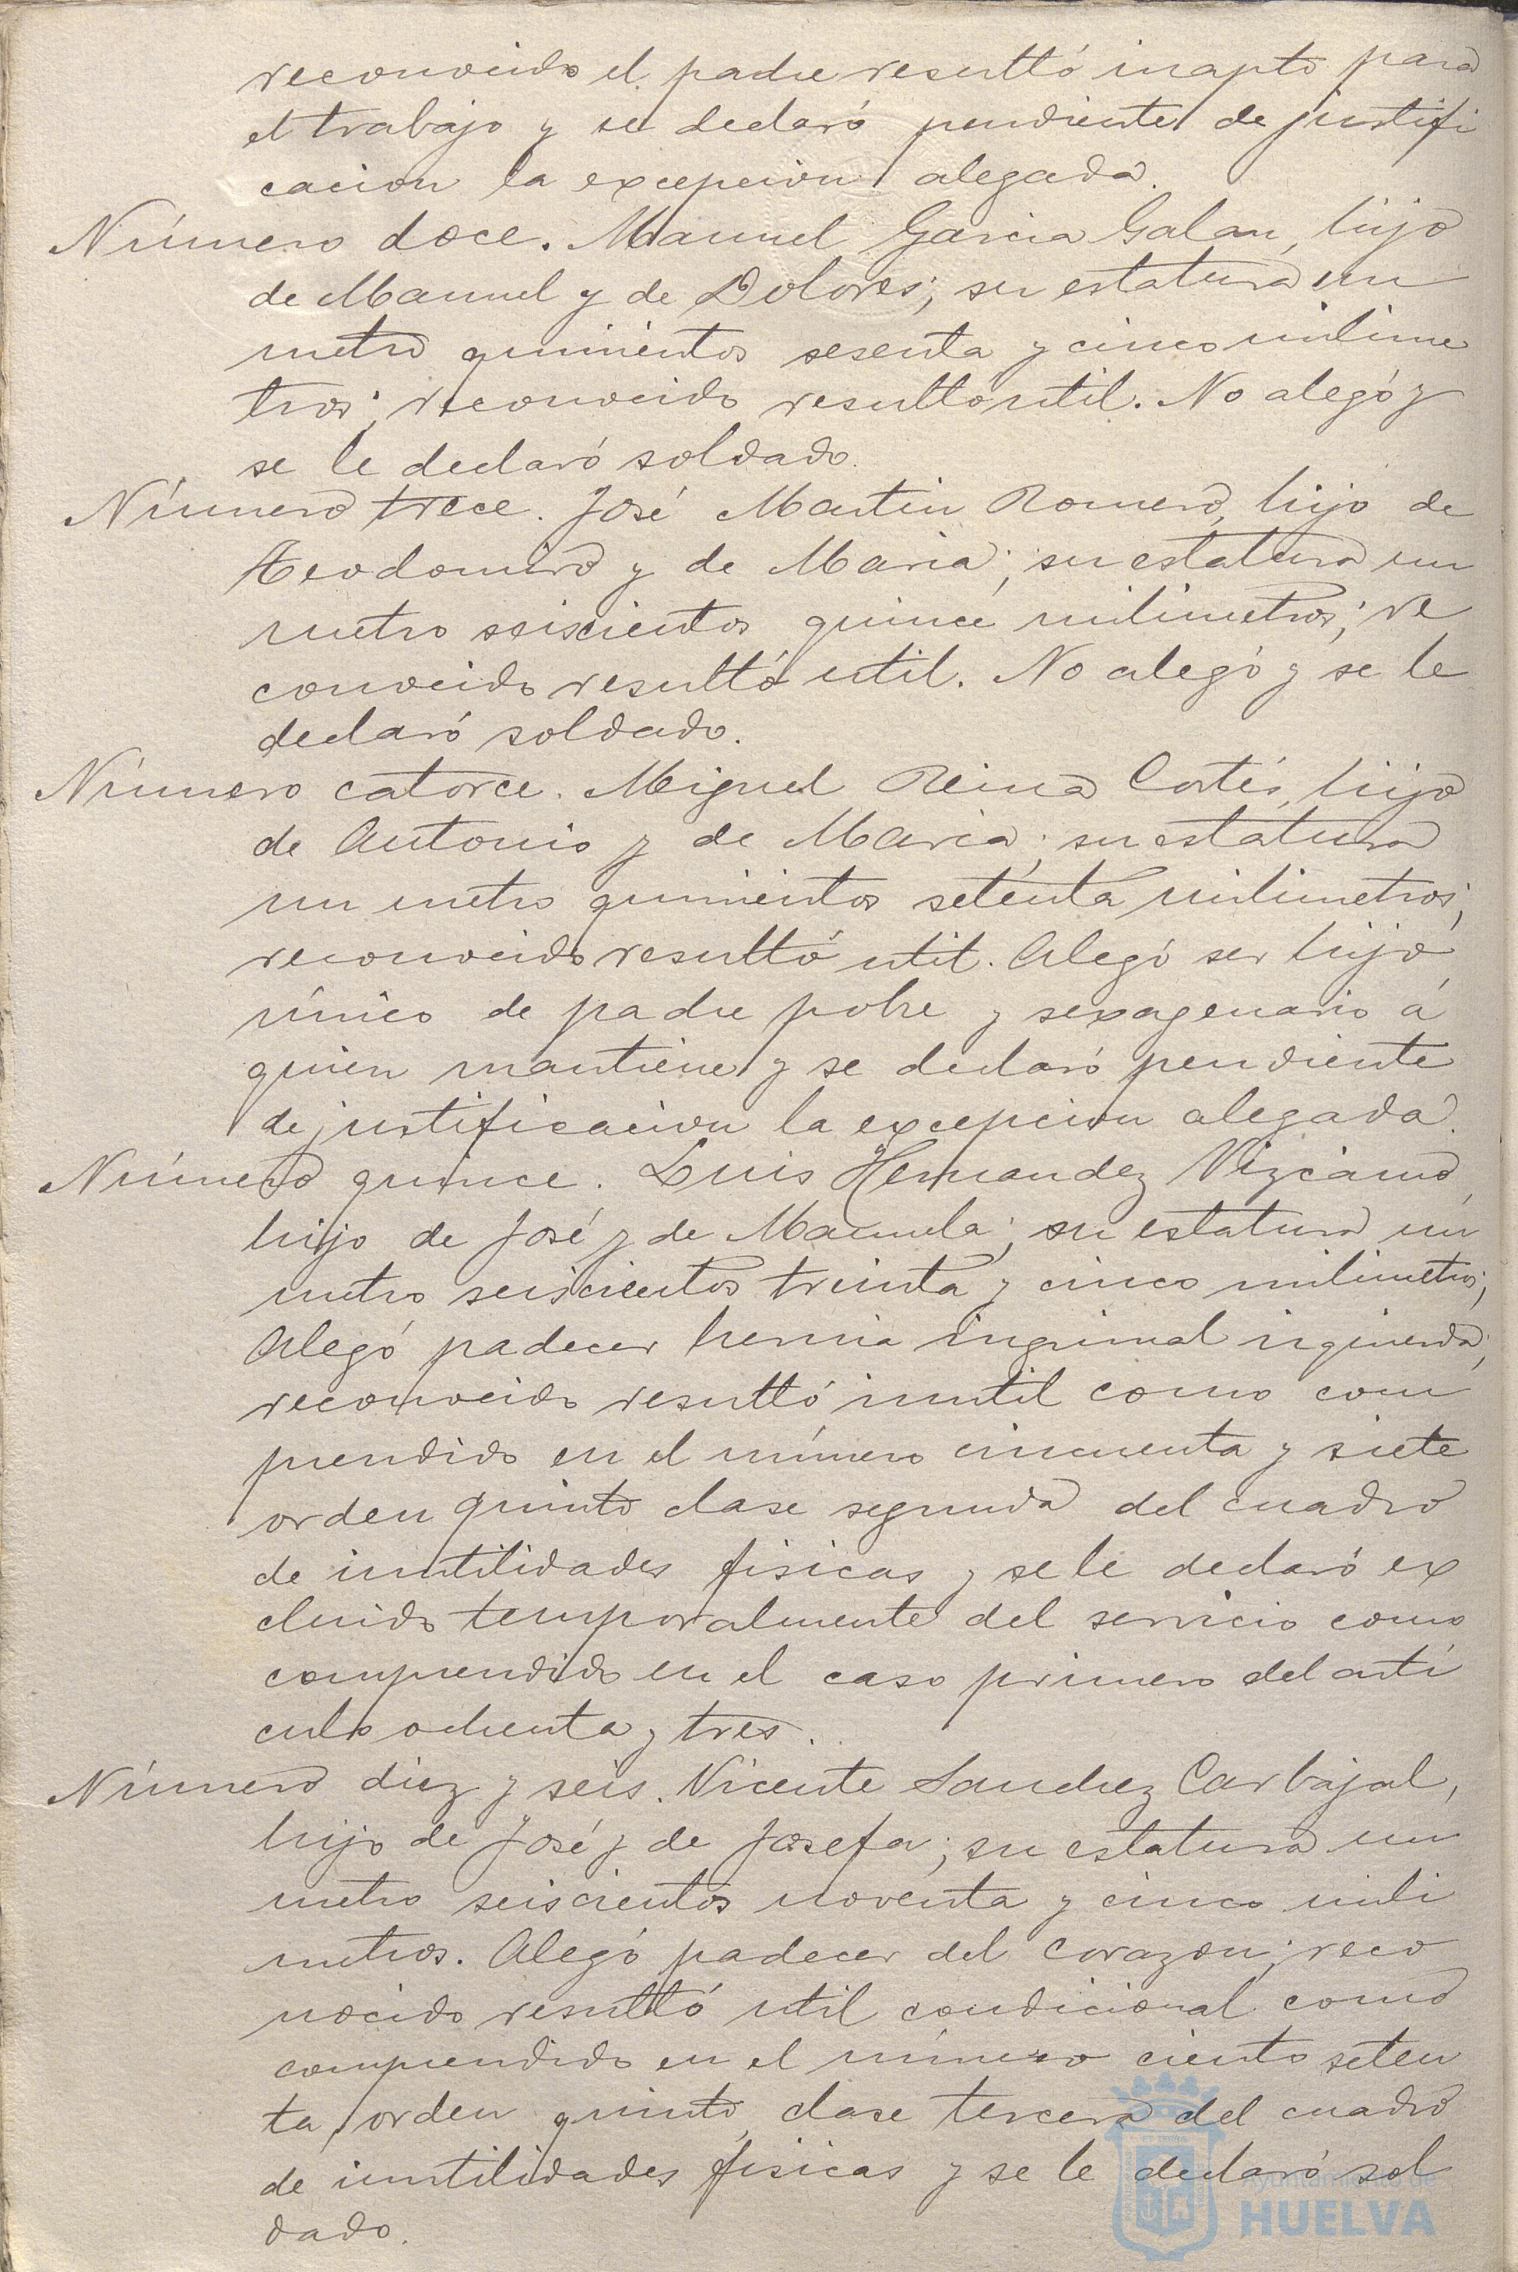 reconocido el padre resultó inapto para
el trabajo y se declaró pendiente de justifi
cacion la excepcion alegada.
Número doce. Manuel Garcia Galan, hijo
de Manuel y de Dolores; su estatura un
metro quinientos sesenta y cinco milime
tros; reconocido resultó util. No alegó y
se le declaró soldado.
Número trece. José Martin Romero, hijo de
Teodomiro y de Maria; su estatura un
metro seiscientos quince milimetros; re
conocido resultó util. No alegó y se le
declaró soldado.
Número catorce. Miguel Reina Cortés, hijo
de Antonio y de Maria; su estatura
un metro quinientos setenta milimetros;
reconocido resultó util. Alegó ser hijo
único de padre pobre y sexagenario á
quien mantiene y se declaró pendiente
de justificacion la excepcion alegada.
Número quince. Luis Hernandez Vizcaino,
hijo de José y de Manuela; su estatura un
metro seiscientos treinta y cinco milimetros;
Alegó padecer hernia inguinal izquierda;
reconocido resultó inutil como com
prendido en el número cincuenta y siete
orden quinto clase segunda del cuadro
de inutilidades fisicas y se le declaró ex
cluido temporalmente del servicio como
comprendido en el caso primero del arti
culo ochenta y tres.
Número diez y seis. Vicente Sanchez Carbajal,
hijo de José y de Josefa; su estatura un
metro seiscientos noventa y cinco mili
metros. Alegó padecer del corazon; reco
nocido resultó util condicional como
comprendido en el número ciento seten
ta, orden quinto, clase tercera del cuadro
de inutilidades fisicas y se le declaró sol
dado.
Ayuntamiento de
HUELVA